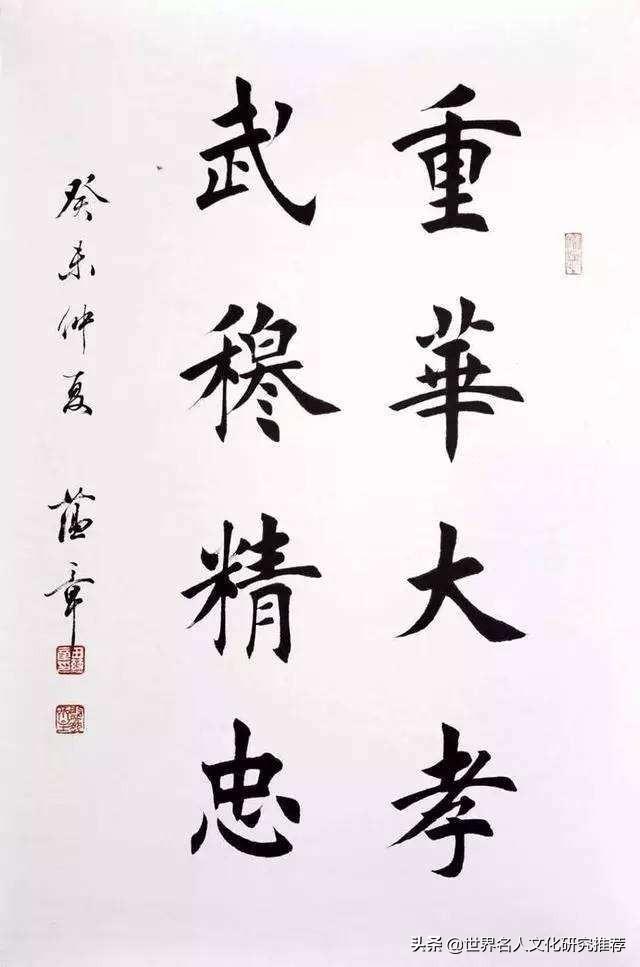 重華大孝
武穆精忠
癸未仲夏 蕴章
头条 @世界名人文化研究推荐